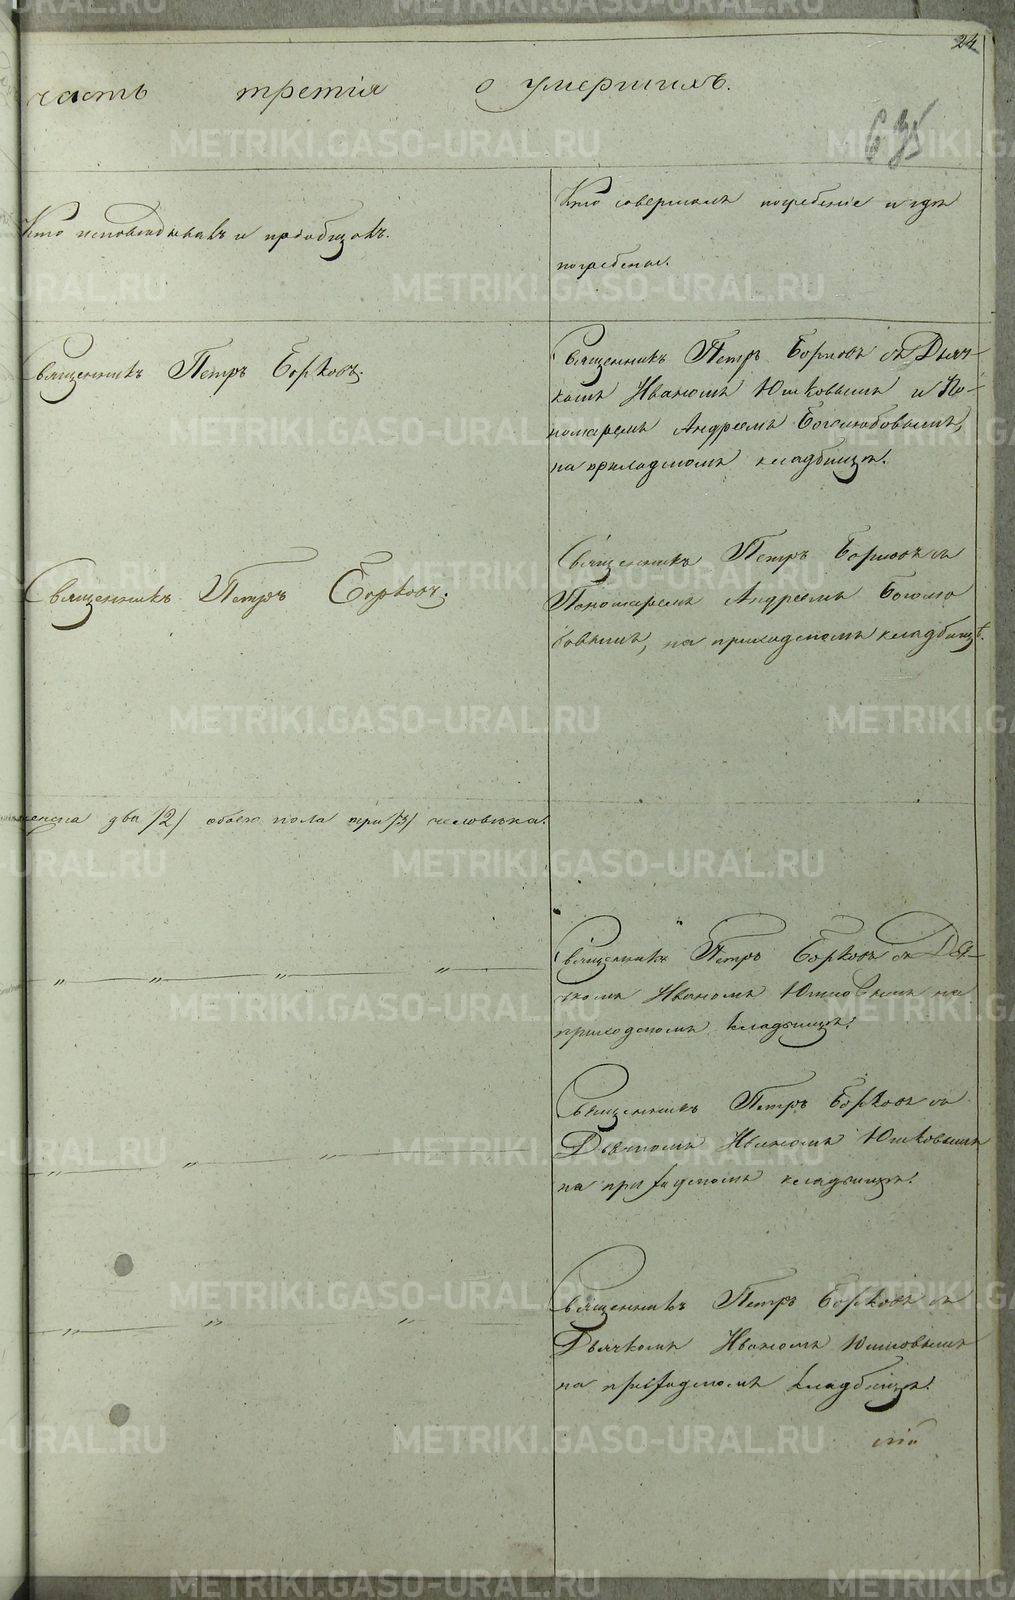 24
часть третія о умершихъ.
635
Кто исповѣдывалъ и пріобщалъ.
Кто совершалъ погребеніе и гдѣ
погребены.
Священникъ Петръ Борковъ.
Священникъ Петръ Борковъ съ Дьяч-
комъ Иваномъ Юшковымъ и По-
номаремъ Андреемъ Боголюбовымъ,
на приходскомъ кладбищѣ.
Священникъ Петръ Борковъ.
Священникъ Петръ Борковъ съ
Пономаремъ Андреемъ Боголю
бовымъ, на приходскомъ кладбищѣ.
женска два /2/ обоего пола три /3/ человѣка.
Священникъ Петръ Борковъ съ Дья-
чкомъ Иваномъ Юшковымъ на
приходскомъ кладбищѣ.
Священникъ Петръ Борковъ съ
Дьячкомъ Иваномъ Юшковымъ
на приходскомъ кладбищѣ.
Священникъ Петръ Борковъ съ
Дьячкомъ Иваномъ Юшковымъ
на приходскомъ кладбищѣ.
METRIKI.GASO-URAL.RU